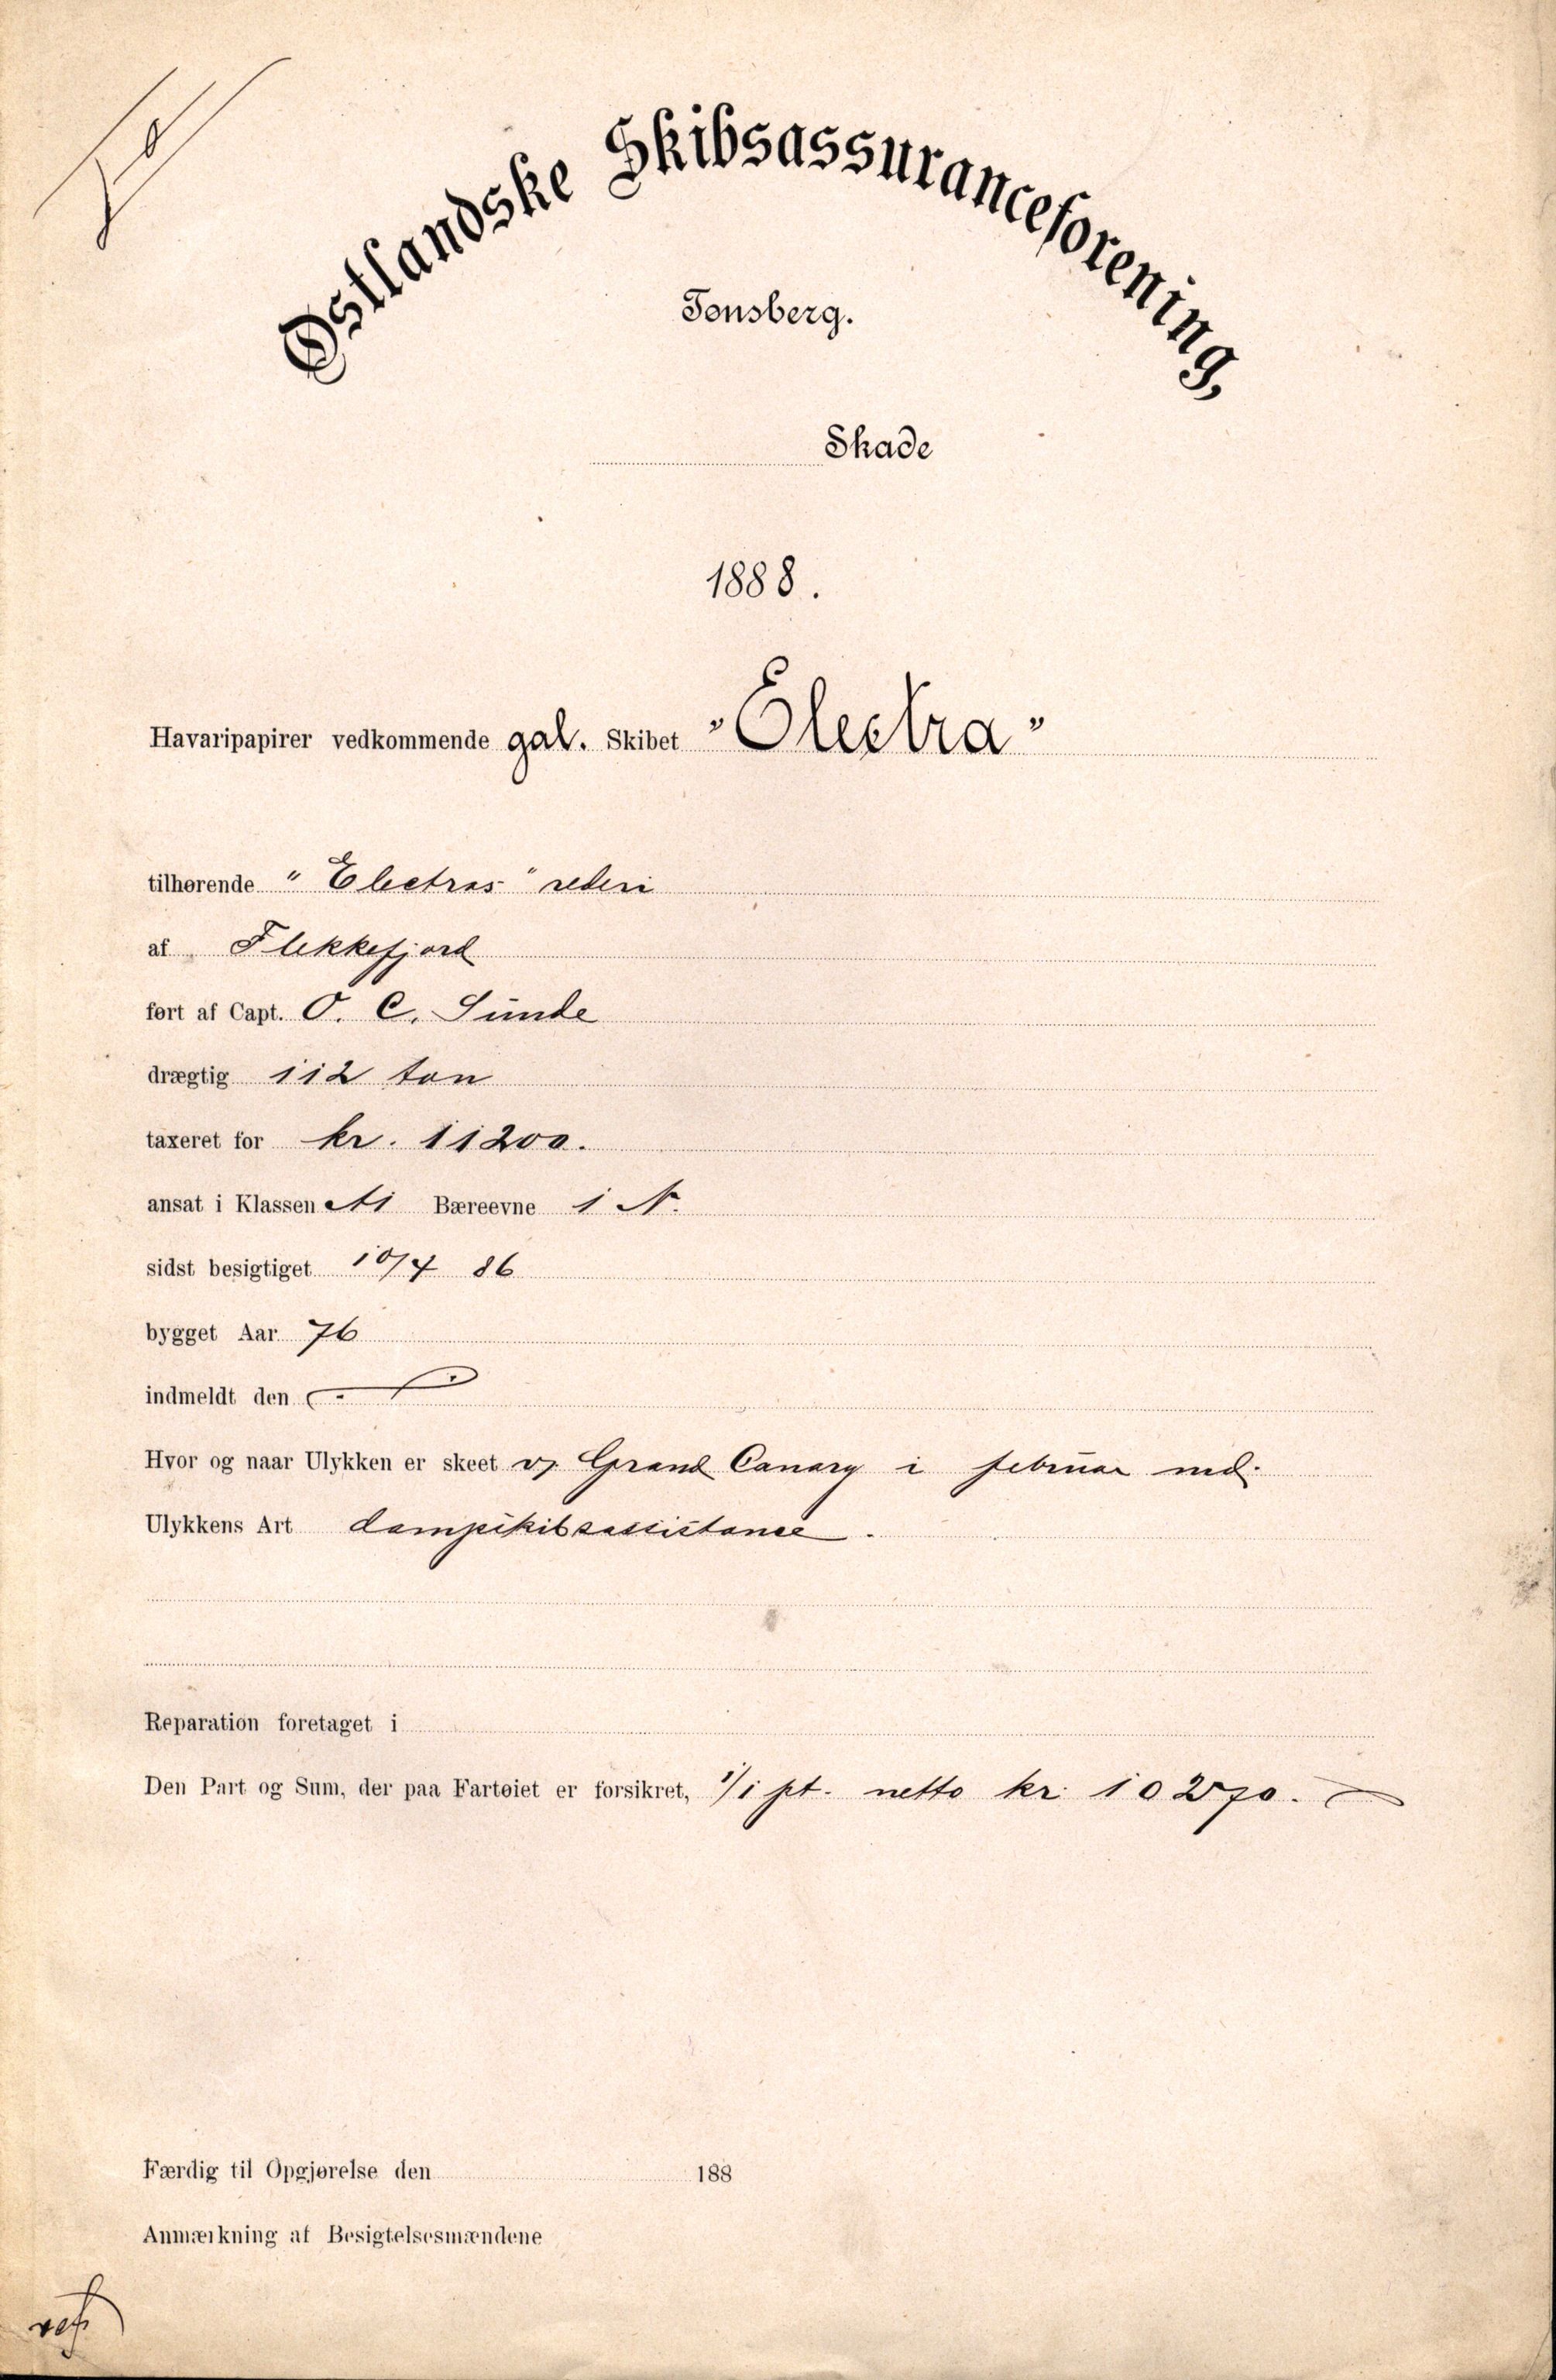 Østlandske Skibsassuranceforening,
Tønsberg.
Skade
1888.
Havaripapirer vedkommende gal. Skibet "Electra"
tilhørende "Electras" rederi
af Flekkefjord
ført af Capt. O. C. Sunde
drægtig 112 ton
taxeret for kr. 11200.
ansat i Klassen A1 Bæreevne 1 N.
sidst besigtiget 10/4 86
bygget Aar 76
indmeldt den
Hvor og naar Ulykken er skeet v/ Grand Canary i februar md.
Ulykkens Art dampskibsassistance.
Reparation foretaget i
Den Part og Sum, der paa Fartøiet er forsikret, 1/1 pt. netto kr. 10270.
Færdig til Opgjørelse den 188
Anmærkning af Besigtelsesmændene